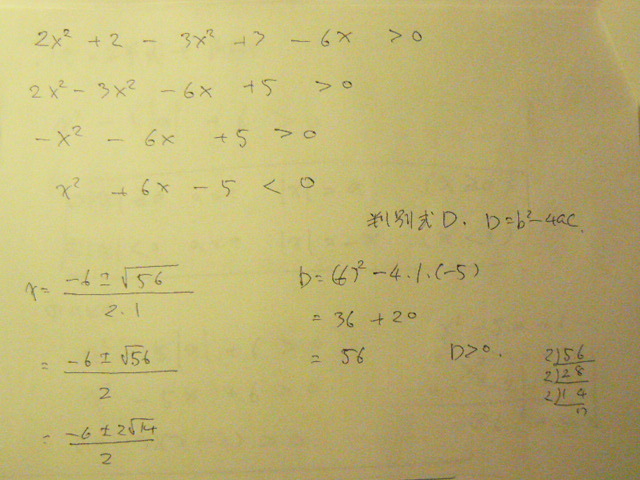 2x² + 2 - 3x² + 3 - 6x > 0
2x² - 3x² - 6x + 5 > 0
-x² - 6x + 5 > 0
x² + 6x - 5 < 0
判別式 D. D = b² - 4ac.
x = (-6 ± √56) / 2·1
= (-6 ± √56) / 2
= (-6 ± 2√14) / 2
D = (6)² - 4·1·(-5)
= 36 + 20
= 56 D > 0.
2)56
2)28
2)14